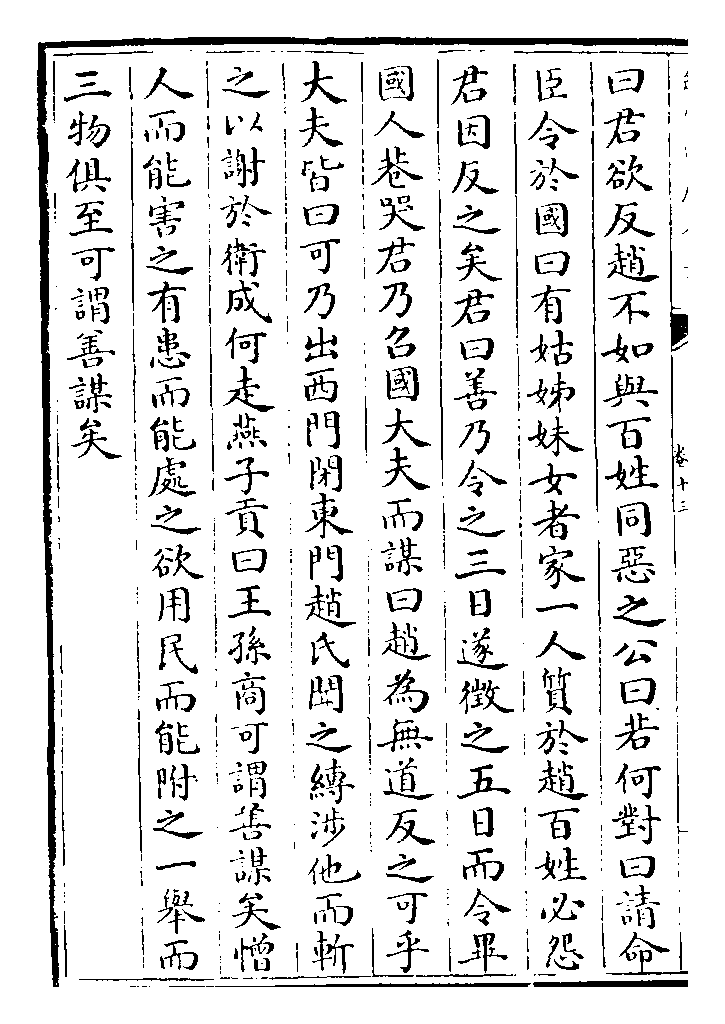 曰君欲反趙不如與百姓同惡之公曰若何對曰請命
臣令於國曰有姑姊妹女者家一人質於趙百姓必怨
君因反之矣君曰善乃令之三日遂徴之五日而令畢
國人巷哭君乃召國大夫而謀曰趙為無道反之可乎
大夫皆曰可乃出西門閉東門趙氏聞之縛涉他而斬
之以謝於衛成何走燕子貢曰王孫商可謂善謀矣憎
人而能害之有患而能處之欲用民而能附之一舉而
三物俱至可謂善謀矣
卷十三